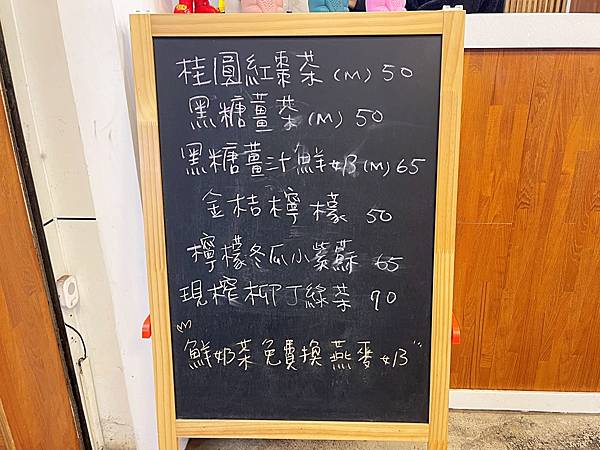 桂圓紅棗茶(M) 50
黑糖薑茶(M) 50
黑糖薑汁鮮奶(M) 65
金桔檸檬 50
檸檬冬瓜小紫蘇 65
現榨柳丁綠茶 90
鮮奶茶免費換燕麥奶